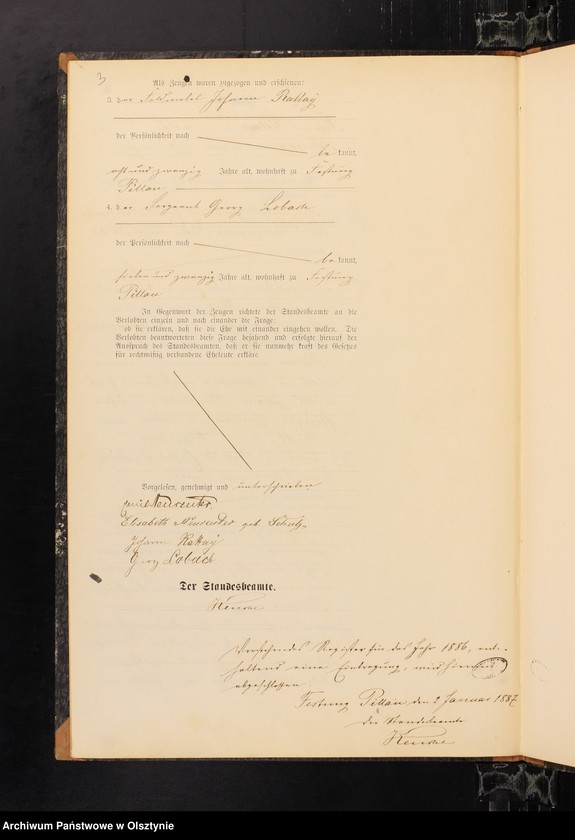 3
Als Zeugen waren zugezogen und erschienen:
3. der Feldwebel Johann Rattay
der Persönlichkeit nach
be kannt,
acht und zwanzig Jahre alt, wohnhaft zu Festung
Pillau
4. der Sergeant Georg Loback
der Persönlichkeit nach
be kannt,
sieben und zwanzig Jahre alt, wohnhaft zu Festung
Pillau
In Gegenwart der Zeugen richtete der Standesbeamte an die
Verlobten einzeln und nach einander die Frage:
ob sie erklären, daß sie die Ehe mit einander eingehen wollen. Die
Verlobten beantworteten diese Frage bejahend und erfolgte hierauf der
Ausspruch des Standesbeamten, daß er sie nunmehr kraft des Gesetzes
für rechtmäßig verbundene Eheleute erkläre.
Vorgelesen, genehmigt und unterschrieben
Elisabeth geb.
Johann Rattay
Georg Loback
Der Standesbeamte.
Vorstehendes Register für das Jahr 1886, ent-
haltend eine Eintragung, wird hiermit
abgeschlossen
Festung Pillau den 2 Januar 1887
der Standesbeamte
Archiwum Państwowe w Olsztynie